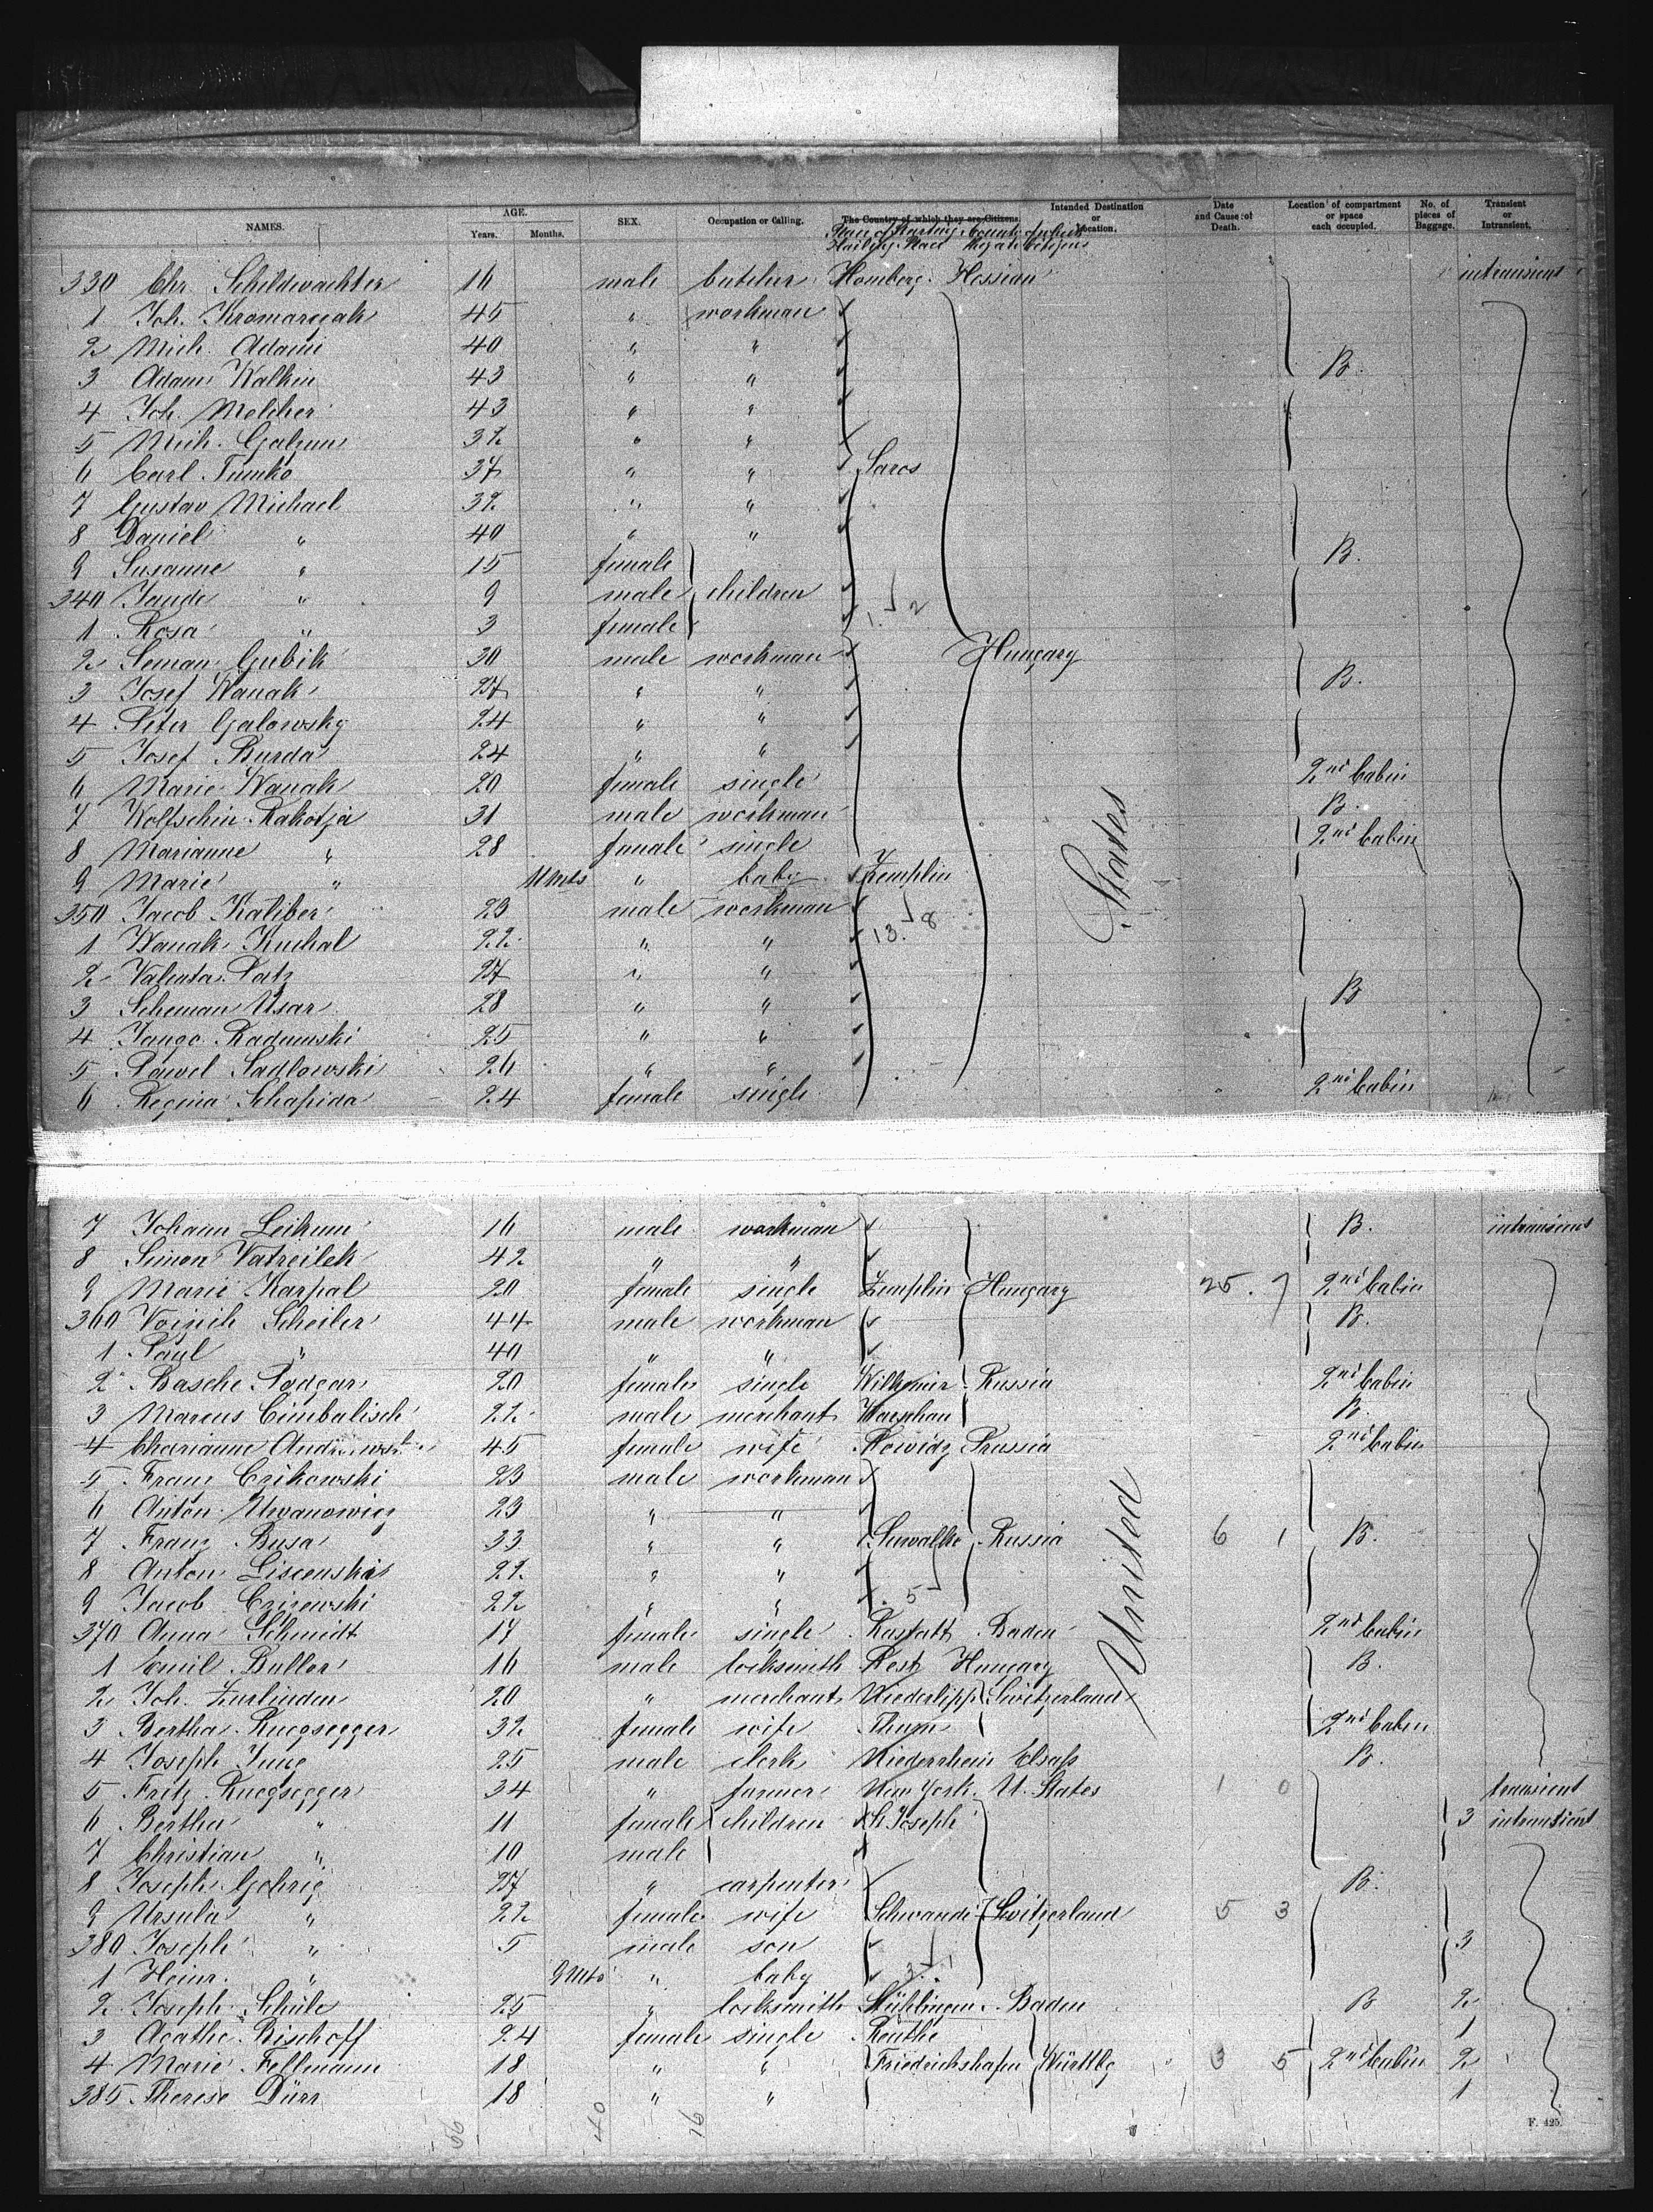 NAMES. AGE. Years. Months. SEX. Occupation or Calling. The Country of which they are Citizens. Intended Destination or Location. Date and Cause of Death. Location of compartment or space each occupied. No. of pieces of Baggage. Transient or Intransient.
330 Chr. Schildwachter 16 male butcher Homberg Hessian intransient
1 Joh. Kromarczak 45 " workman
2 Mich. Adami 40 " "
3 Adam Walkin 43 " " B.
4 Joh. Melcher 43 " "
5 Mich. Galzun 32 " "
6 Carl Timko 37 " " Saros
7 Gustav Michael 32 " "
8 Daniel " 40 " "
9 Susanne " 15 female B.
340 Jande " 9 male children 1. 2
1 Rosa " 3 female
2 Seman Gubik 30 male workman Hungary
3 Josef Wanak 27 " " B.
4 Peter Galowsky 24 " "
5 Josef Burda 24 " "
6 Marie Wanak 20 female single 2nd Cabin
7 Wolfschin Rakotja 31 male workman B.
8 Marianne " 28 female single 2nd Cabin
9 Marie " 11 Mts " baby Zemplin
350 Jacob Kaliber 23 male workman 13. 8
1 Wanak Kuchal 22 " "
2 Valenta Patz 27 " "
3 Scheman Usar 28 " " B
4 Jango Radamski 25 " "
5 Pawel Sadlowski 26 " "
6 Regina Schapida 24 female single 2nd Cabin
States
7 Johann Leikum 16 male workman B. intransient
8 Simon Vatreilek 42 " "
9 Marie Karpal 20 female single Zemplin Hungary 25. 7 2nd Cabin
360 Voinich Scheiler 44 male workman B.
1 Paul " 40 " "
2 Basche Podgar 20 female single Wilkomir Russia 2nd Cabin
3 Marcus Cimbalisch 22 male merchant Warschau B.
4 Charianne 45 female wife Powidz Prussia 2nd Cabin
5 Franz Czikowski 23 male workman
6 Anton Uwanowicz 23 " "
7 Franz Busa 33 " " Suwalko Russia 6 1 B.
8 Anton Liscenskis 22 " "
9 Jacob Czizewski 22 " " 5
370 Anna Schmidt 17 female single Rastatt Baden 2nd Cabin
1 Emil Buller 16 male locksmith Pest Hungary B.
2 Joh. Zurlinden 20 " merchant Niederlipp Switzerland
3 Bertha Ruegsegger 32 female wife Thun 2nd Cabin
4 Joseph Jung 25 male clerk Niederrhein Elsass B.
United
5 Fritz Ruegsegger 34 " farmer New York U. States 1 0 transient
6 Bertha " 11 female children St Joseph 3 intransient
7 Christian " 10 male
8 Joseph Gehrig 27 " carpenter B.
9 Ursula " 22 female wife Schwandi Switzerland 5 3
380 Joseph " 5 male son 3
1 Heinr. " 9 Mts " baby 3. 1
2 Joseph Schüle 25 " locksmith Stühlingen Baden B 2
3 Agathe Bischoff 24 female single Reuthe 1
4 Marie Fellmann 18 " " Friedrichshafen Württbg 3 5 2nd Cabin 2
385 Therese Dürr 18 " " 1
56 40 16
F. 425.